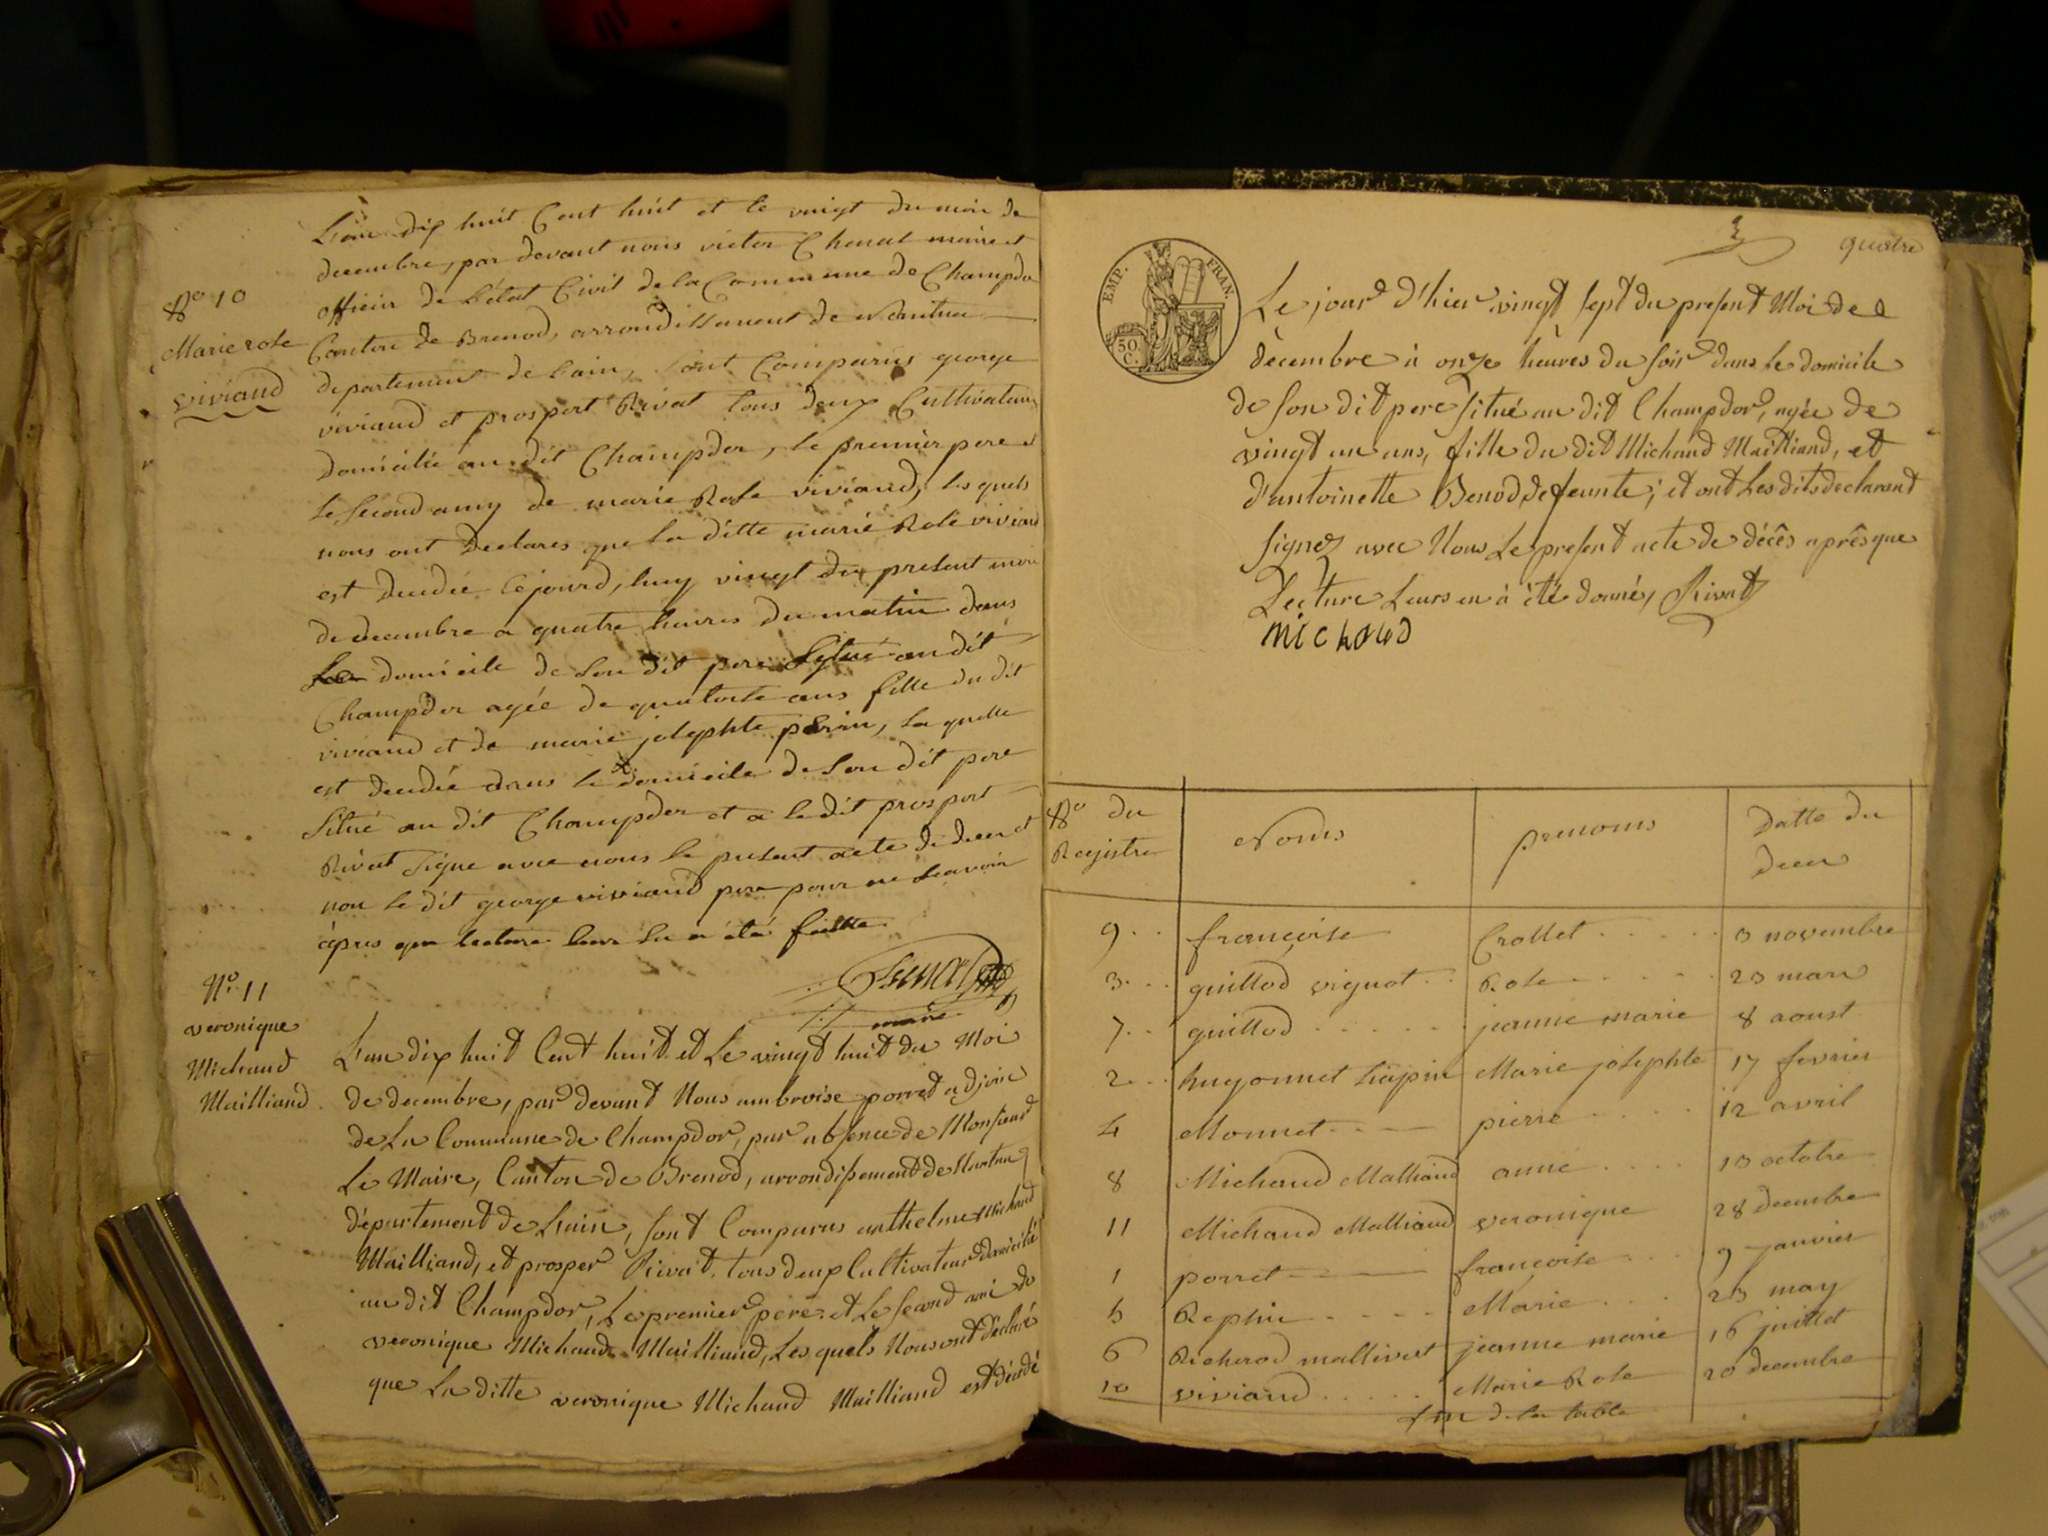 N.o 10
Marie rose
viviand
L'an dix huit Cent huit et le vingt du mois de
decembre, par devant nous victor Chenat maire et
officier de l'état Civil de la Commune de Champdor
Canton de Brenod, arrondissement de Nantua
departement de l'ain, sont Comparus george
viviand et prospert Rivat tous deux Cultivateurs
domicilié au dit Champdor, le premier pere et
le second amy de marie Rose viviand, les quels
nous ont declares que la ditte marie Rose viviand
est decedée cejourd'huy vingt du present mois
de decembre a quatre heures du matin dans
domicile de son dit pere situé au dit
Champdor agée de quatorse ans fille du dit
viviand et de marie josephte perin, la quelle
est decedée dans le domicile de son dit pere
situé au dit Champdor et a le dit prospert
Rivat signe avec nous le present acte de deces et
non le dit george viviand pere pour ne scavoir
apres que lecture leur en a été faitte
maire
N.o 11
veronique
Michaud
Mailliand
L'an dix huit Cent huit et Le vingt huit du Moi
de decembre, par devant Nous ambroise porret adjoin
de La Commune de Champdor, par absence de Monsieur
Le Maire, Canton de Brenod, arrondissement de Nantua
département de L'ain, sont Comparus anthelme Michaud
Mailliand, et prosper Rivat, tous deux Cultivateurs domicilié
au dit Champdor, Le premier père et Le second ami de
veronique Michaud Mailliand, Les quels Nous ont déclaré
que La ditte veronique Michaud Mailliand est décédé
quatre
EMP. FRAN.
50 C.
Le jour d'hier vingt sept du present Moi de
décembre à onze heures du soir dans le domicile
de son dit pere situé au dit Champdor, agée de
vingt un ans, fille du dit Michaud Mailliand, et
d'antoinette Benod, defeunte; et ont Les dits declarant
signez avec Nous Le present acte de décês aprês que
Lecture Leurs en à été donné, Rivat
Michaud
N.o du Registre Noms prenoms Datte du deces
9 francoise Crollet 3 novembre
3 guillod vignot Rose 23 mars
7 guillod jeanne marie 8 aoust
2 hugonnet Marie josephte 17 fevrier
4 Monnet pierre 12 avril
8 Michaud Malliand anne 13 octobre
11 Michaud Malliand veronique 28 decembre
1 porret francoise 9 janvier
5 Rephin Marie 23 may
6 Richerod mallivert jeanne marie 16 juillet
10 viviand Marie Rose 20 decembre
fin de la table